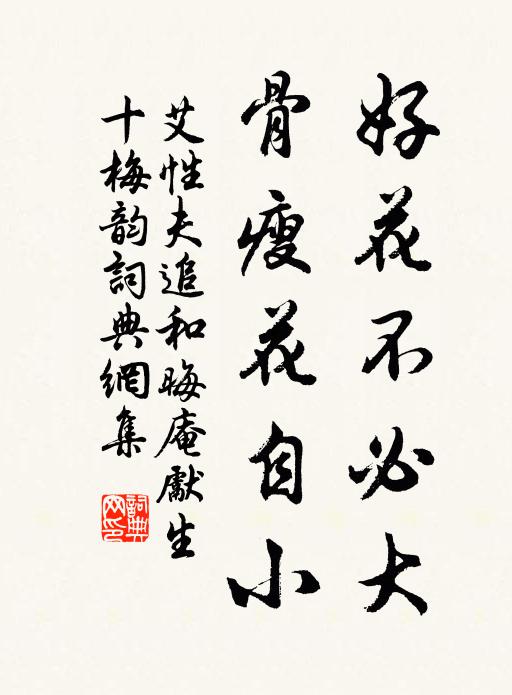 好花不必大
骨瘦花自小
艾性夫追和晦庵獻生
十梅韵詞典網集
詞典網印